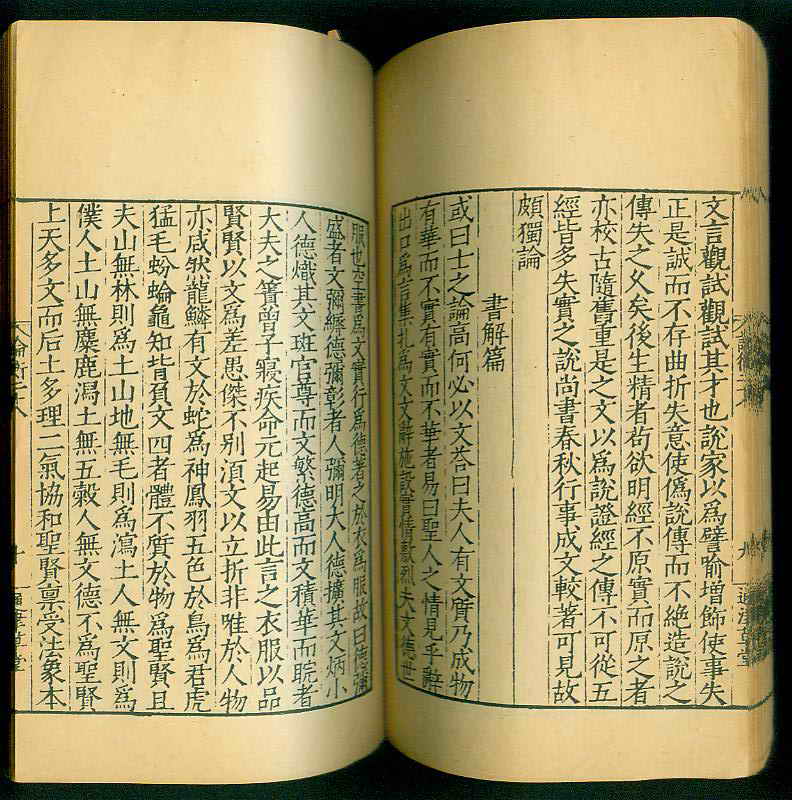 文言觀試觀試其才也說家以爲譬喻增飾使事失
正是誠而不存曲折失意使僞說傳而不絕造說之
傳失之久矣後生精者苟欲明經不原實而原之者
亦校古隨舊重是之文以爲說證經之傳不可從五
經皆多失實之說尚書春秋行事成文較著可見故
頗獨論
書解篇
或曰士之論高何必以文荅曰夫人有文質乃成物
有華而不實有實而不華者易曰聖人之情見乎辭
出口爲言集札爲文文辭施設實情敷烈夫文德世
服也空書爲文實行爲德著之於衣爲服故曰德彌
盛者文彌縟德彌彰者人彌明大人德擴其文炳小
人德熾其文斑官尊而文繁德高而文積華而睆者
大夫之簀曾子寢疾命元起易由此言之衣服以品
賢賢以文爲差愚傑不別湏文以立折非唯於人物
亦咸然龍鱗有文於蛇爲神鳳羽五色於鳥爲君虎
猛毛蚡蜦龜知背負文四者體不質於物爲聖賢且
夫山無林則爲土山地無毛則爲瀉土人無文則爲
僕人土山無麋鹿瀉土無五榖人無文德不爲聖賢
上天多文而后土多理二氣協和聖賢稟受法象本
論衡二十八
十
通津草堂